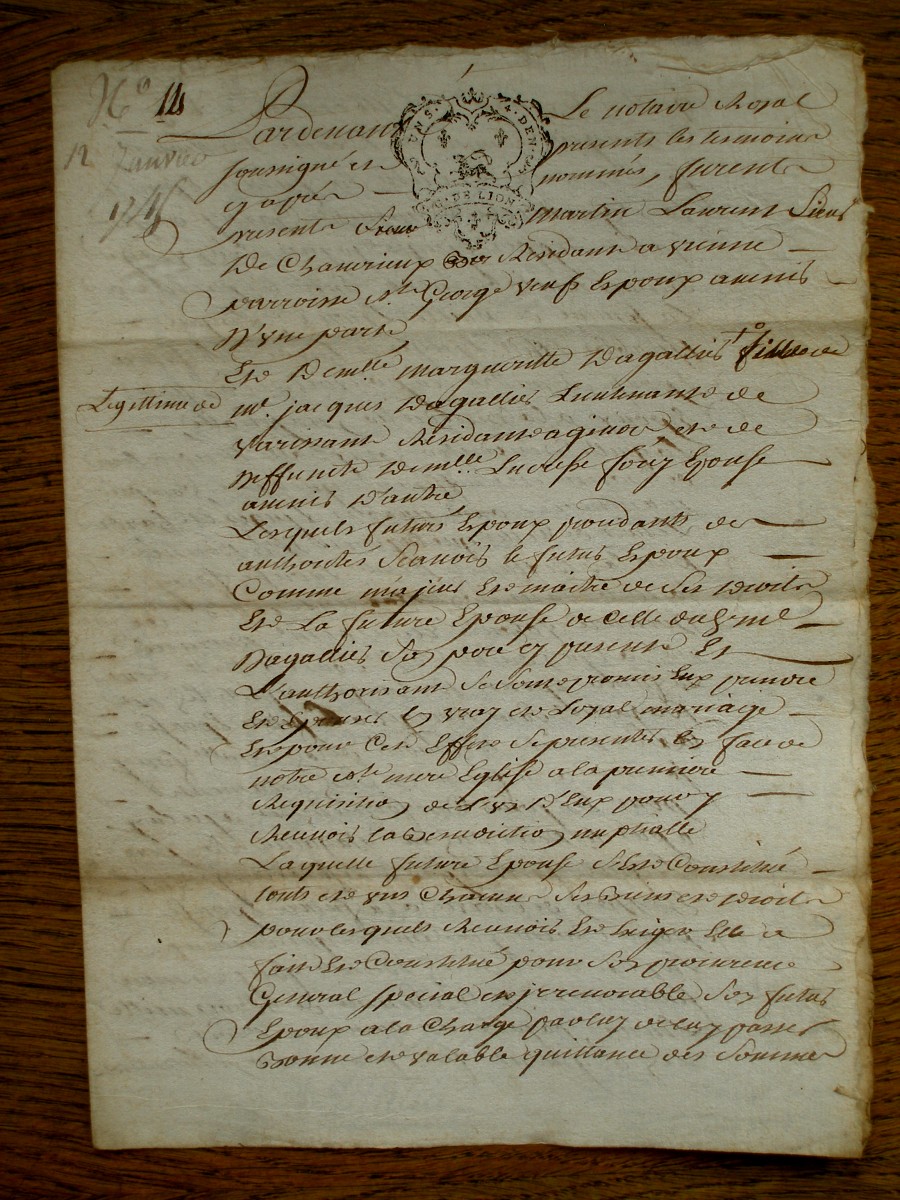 N° 12
12 Janvier
Pardevant Le notaire Royal
soussigné et presents les tesmoins
cy après nommés, furent
presents Sieur martin Laurent Sieur
De Chauvieux Résidant a vienne
parroisse St George veuf Epoux avenir
D'une part
Et Demlle margueritte Dagallier +° fille de
Legittime de
mr jacques Dagallier Lieutenant de
Résidant a et de
Deffuncte Demlle Lucresse Epouse
avenir D'autre
Lesquels futurs Epoux procedants de
authorités scavoir le futur Epoux
Comme majeur Et maitre de ses Droits
Et La future Epouse de Celle dud. sr
Dagallier son pere cy present Et
L'authorisant se sont promis Eux prendre
Et Epouser En vray et Loyal mariage
Et pour Cet Effet se presenter En face de
notre ste mere Eglise a la premiere
Requisition de L'un D'Eux pour y
Recevoir la Benediction nuptialle
Laquelle future Epouse s'est Constitué
touts et uns Chacuns ses Biens et Droits
pour lesquels Recevoir Et Exiger Elle a
fait Et Constitué pour son procureur
General special et irrevocable son futur
Epoux a la Charge par luy de luy passer
Bonne et valable quittance des sommes
GEN. DE LION